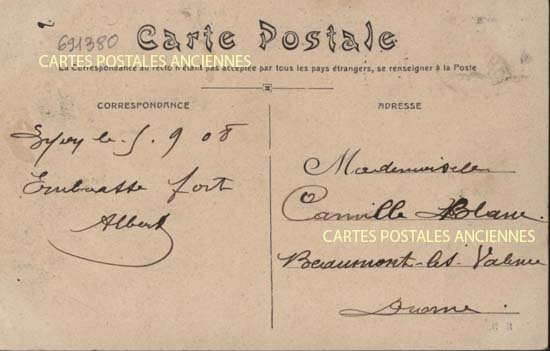 691380
Carte Postale
CARTES POSTALES ANCIENNES
La Correspondance au recto n'étant pas acceptée par tous les pays étrangers, se renseigner à la Poste
CORRESPONDANCE
le 5. 9 08
Embrasse fort
Albert
ADRESSE
Mademoiselle
Camille Blanc
CARTES POSTALES ANCIENNES
Beaumont-les-Valence
Drome